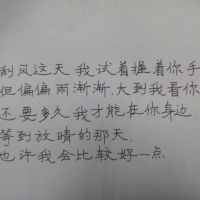 刮风这天 我试着握着你手
但偏偏雨渐渐,大到我看你
还要多久我才能在你身边
等到放晴的那天.
也许我会比较好一点